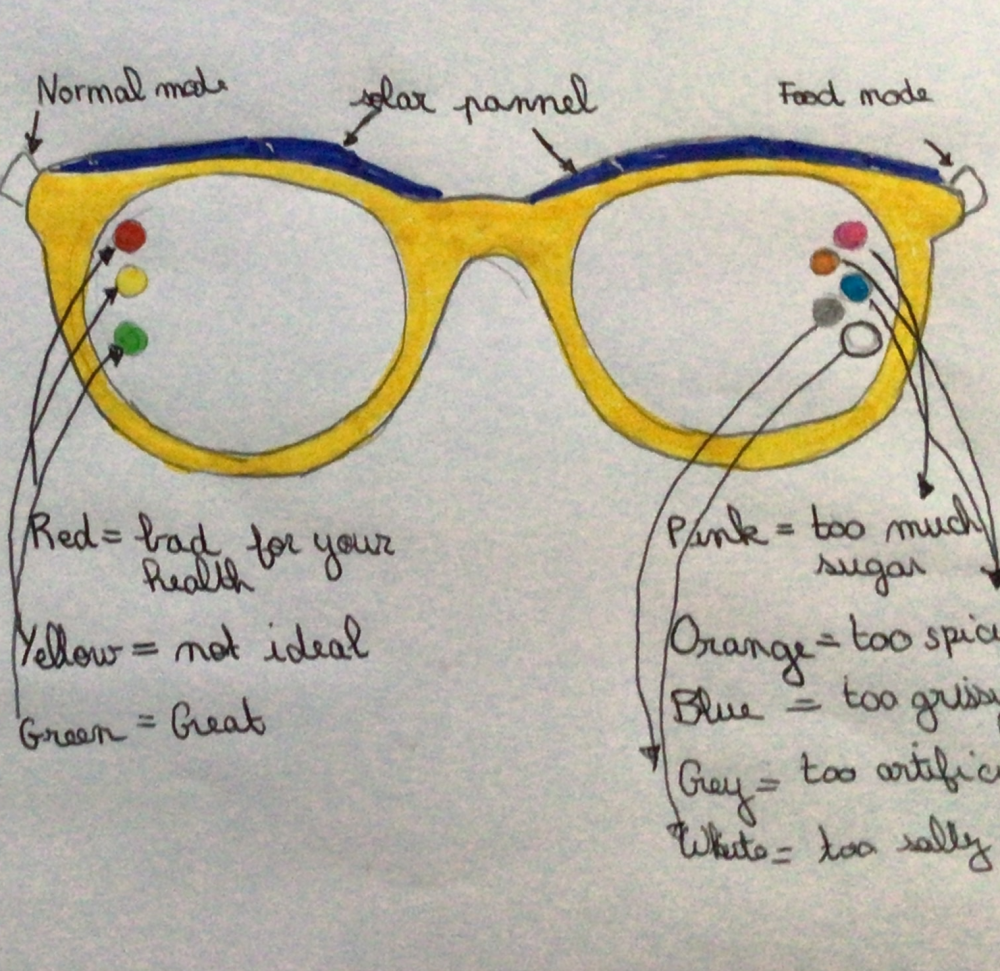 Normal mode
solar pannel
Food mode
Red = bad for your
health
Yellow = not ideal
Green = Great
Pink = too much
sugar
Orange = too spic
Blue = too griss
Grey = too artific
White = too salty